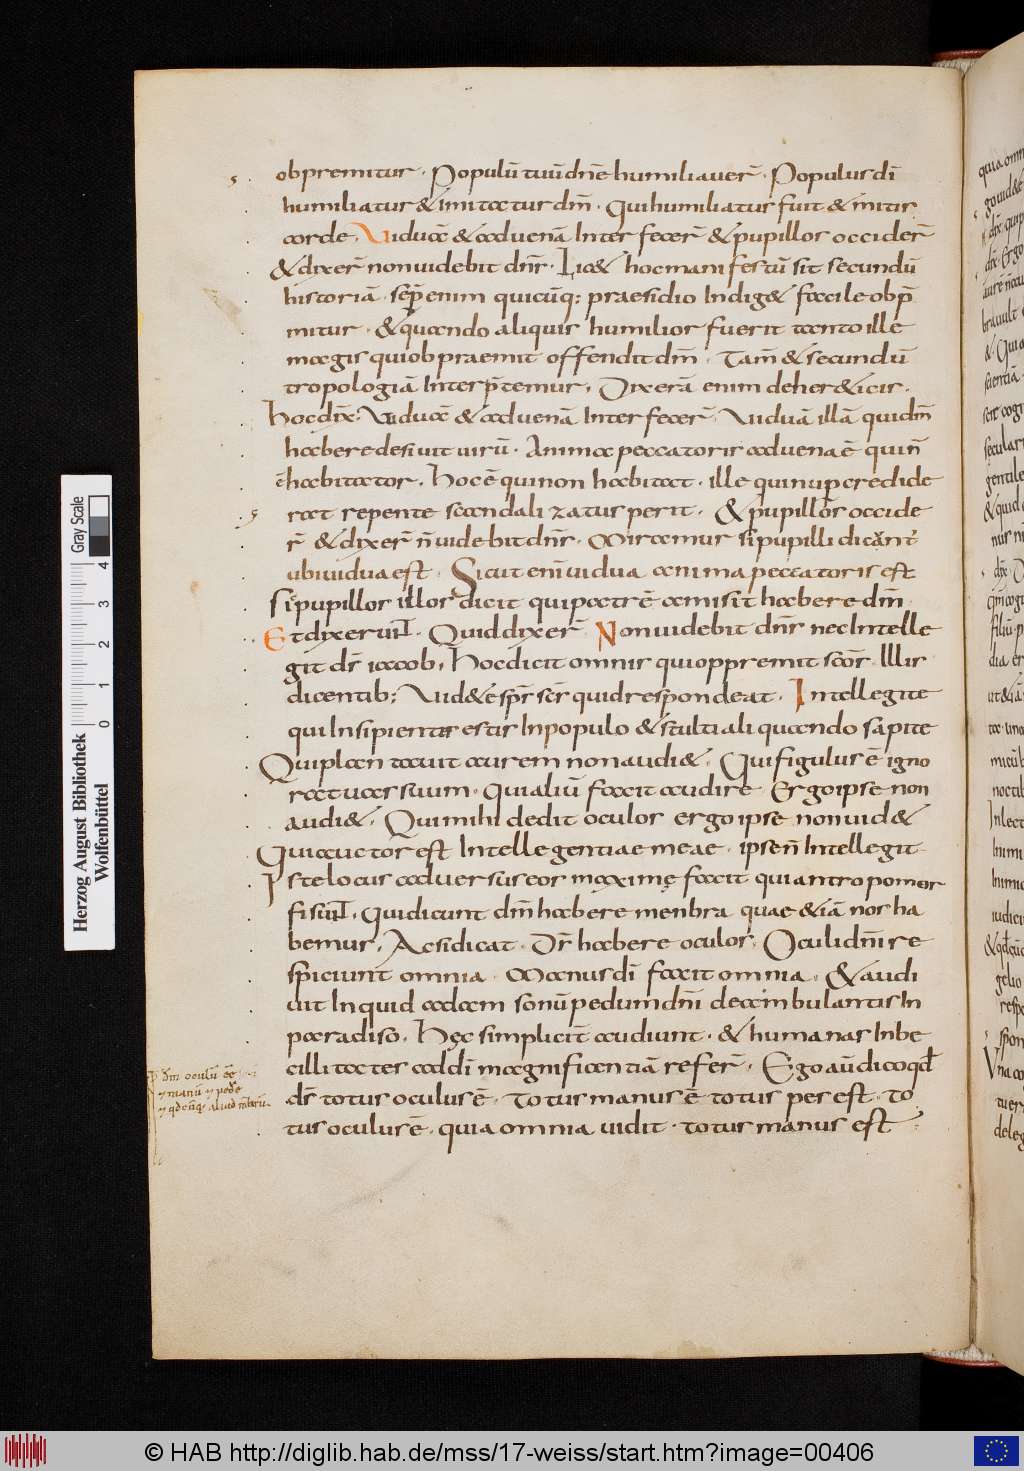 obpremitur. Populū tuū dn̄e humiliauer̄. Populus dī
humiliatur & imitatur dn̄m. Qui humiliatur fuit & mitis
corde. Uiduā & aduenā Interfecer̄ & pupillos occider̄
& dixer̄ non uidebit dn̄s. Lic& hoc manifestū sit secundū
historiā. sēp̄ enim quicūq; praesidio Indig& facile obp̄
mitur. & quando aliquis humilior fuerit tanto ille
magis qui obpraemit offendit dm̄. Tam̄ & secundū
tropologiā Interp̄temur. Dixerā enim de her&icis.
Hoc dix̄. Uiduā & aduenā Interfecer̄. Uiduā illā qui dm̄
habere desiuit uirū. Anima peccatoris aduena ē qui n̄
ē habitator. Hoc ē qui non habitat. ille qui nup̄ credide
rat repente scandalizatus perit. & pupillos occide
r̄ & dixer̄ n̄ uidebit dn̄s. Miramur si pupilli dicant'
ubi uidua est. Sicut eni uidua anima peccatoris est
si pupillos illos dicit qui patrē amisit habere dm̄.
Et dixerunt. Quid dixer̄. Non uidebit dn̄s nec Intelle
git ds̄ iacob. Hoc dicit omnis qui oppremit scōs. Illis
dicentib; Uid& eſp̄s sc̄s quid respondeat. Intellegite
qui Insipientes estis In populo & stulti aliquando sapite
Qui plantauit aurem non audi&. Qui figulus ē igno
rat uas suum. Qui aliū facit audire Ergo ipse non
audi&. Qui mihi dedit oculos ergo ipse non uid&
Qui auctor est Intellegentiae meae. ipse n̄ Intellegit.
Iste locus aduersus eos maxime facit qui antropomor
fi sunt. Qui dicunt dm̄ habere menbra quae & iā nos ha
bemus. Ac si dicat. Ds̄ habere oculos. Oculi dn̄i re
spiciunt omnia. Manus dī facit omnia. & audi
uit Inquid adam sonū pedum dn̄i deambulantis In
paradiso. Hęc simplicit̄ audiunt. & humanas Inbe
cillitates ad dī magnificentiā refer̄. Ego aūt dico qd̄
ds̄ totus oculus ē. Totus manus ē totus pes est. To
tus oculus ē. quia omnia uidit. totus manus est
dm̄ oculū
manū
aliud
Herzog August Bibliothek
Wolfenbüttel
Gray Scale
0 1 2 3 4
© HAB http://diglib.hab.de/mss/17-weiss/start.htm?image=00406